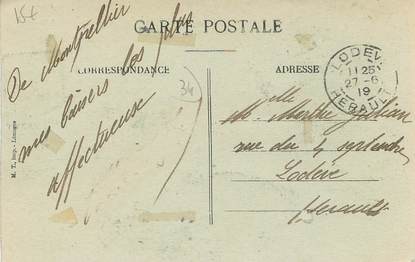 15€
CARTE POSTALE
CORRESPONDANCE
ADRESSE
De Montpellier
les plus
mes baisers
affectueuse
34
LODÈVE
11 25
27-6
19
HÉRAULT
Mlle Marthe
rue du 4 septembre
Lodève
Hérault
M. T., Imp., Limoges